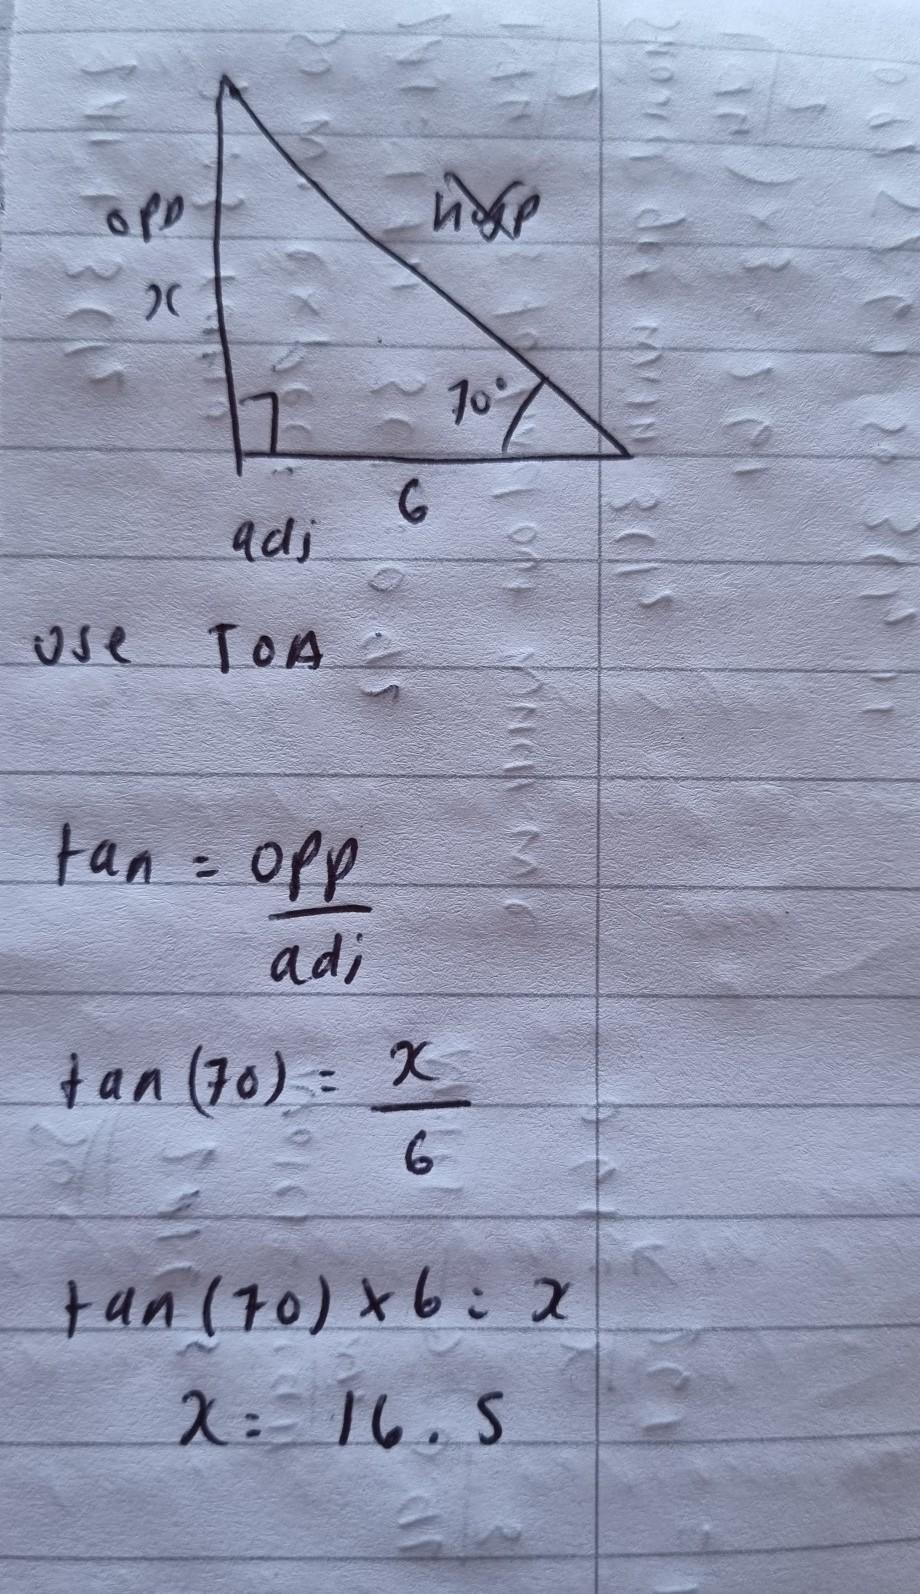 opp
hyp
x
70°
6
adj
use TOA
tan = opp
adj
tan(70) = x
6
tan(70) × 6 = x
x = 16.5